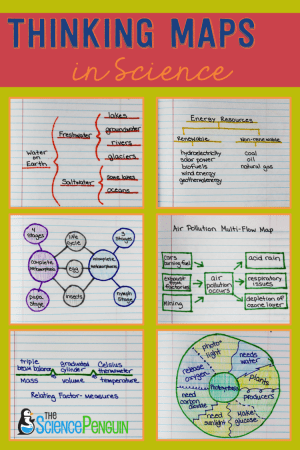 THINKING MAPS
in Science
Water
on
Earth
Freshwater
Saltwater
lakes
groundwater
rivers
glaciers
some lakes
oceans
Energy Resources
Renewable
Non-renewable
hydroelectricity
solar power
biofuels
wind energy
geothermal energy
coal
oil
natural gas
4
stages
life
cycle
3
stages
complete
metamorphosis
egg
incomplete
metamorphosis
pupa
stage
insects
nymph
stage
Air Pollution Multi-Flow Map
cars
burning fuel
exhaust
from
factories
mining
air
pollution
occurs
acid rain
respiratory
issues
depletion of
ozone layer
triple
beam balance
graduated
cylinder
Celsius
thermometer
mass
volume
temperature
Relating Factor- measures
photo
light
needs
water
release
oxygen
Photosynthesis
plants
producers
need
carbon
dioxide
need
sunlight
make
glucose
THE
SCIENCE PENGUIN